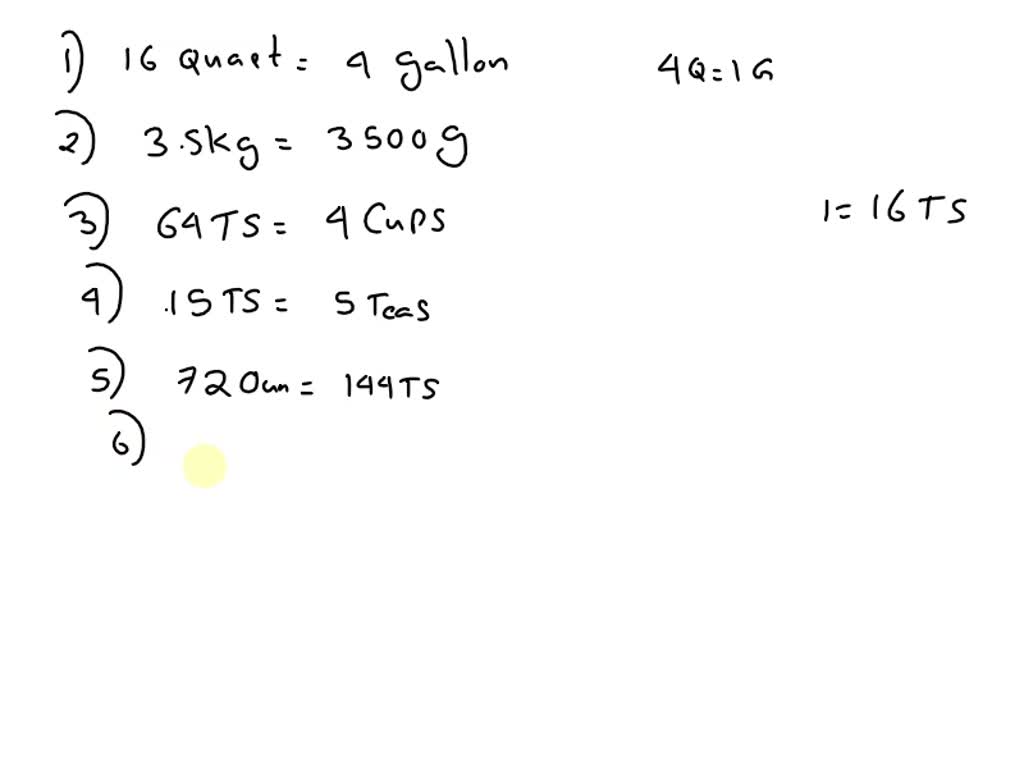 1) 16 Quart = 4 gallon 4Q=1G
2) 3.5kg = 3500g
3) 64TS = 4 Cups 1= 16 TS
4) .15 TS = 5 Teas
5) 72 Oun = 144TS
6)